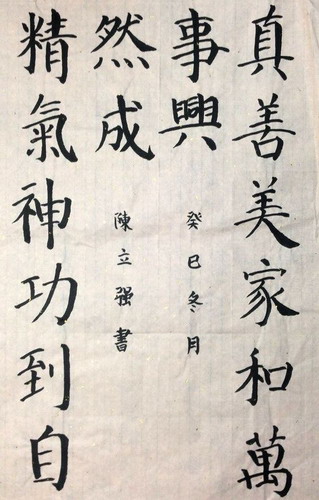 真善美家和萬
事興
癸巳冬月
精氣神功到自
然成
陳立强書